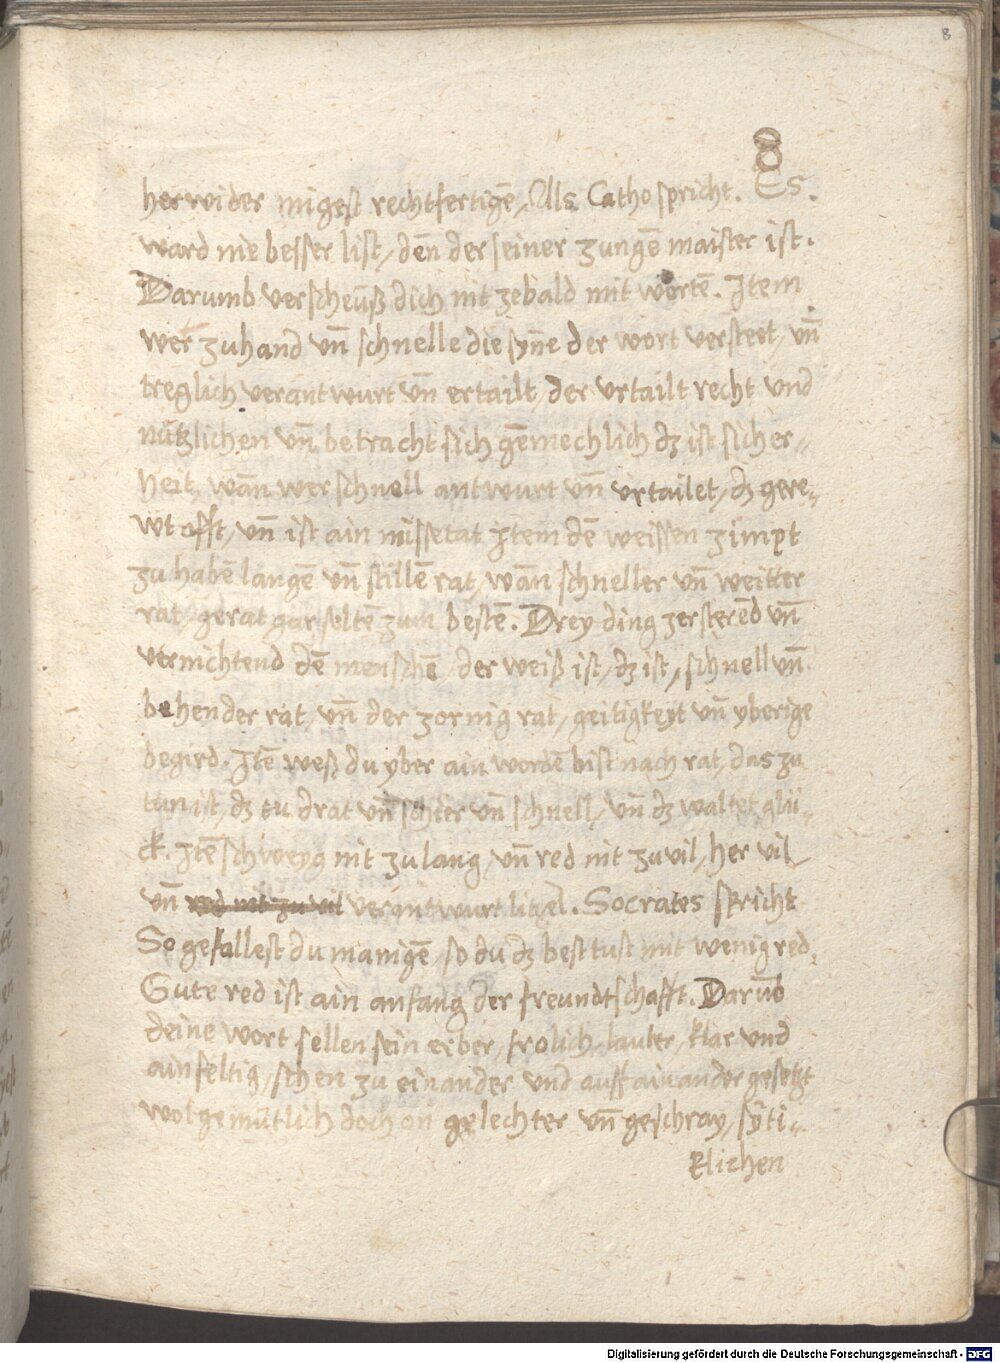 8
8
herwider mügest rechtfertigē, Als Catho spricht. Es.
ward nie besser list, deñ der seiner zungē maister ist.
Darumb verscheüß dich nit zebald mit wortē. Item
wer zuhand vñ schnelle die syñe der wort versteet, vñ
treglich verantwurt vñ ertailt, der vrtailt recht vnd
nützlichen vñ betracht sich gemechlich dz ist sicher-
heit, wañ wer schnell antwurt vñ vrtailet, dz gere-
wt offt, vñ ist ain missetat Item dē weissen zimpt
zu habē langē vñ stillē rat, wañ schneller vñ weitter
rat, gerat gar seltē zum bestē. Drey ding zersterēd vñ
vernichtend dē menschē, der weiß ist, dz ist, schnell vñ
behender rat, vñ der zornig rat, geitigkeyt vñ yberige
begird. Itē weß du yber ain wordē bist nach rat, das zu
tan ist, dz tu drat vñ schier vñ schnell, vñ dz waltet glü-
ck. Itē schweyg nit zu lang, vñ red nit zuvil, her vil
vñ red nit zu vil verantwurt litzel. Socrates spricht
So gefallest du manigē, so du dz best tust mit wenig red.
Gute red ist ain anfang der freundtschafft. Darūb
deine wort sellen sein erber, frolich, lauter, klar vnd
ainfeltig, schen zu einander vnd auff ainander gesetzt
wolgemütlich doch on gelechter vñ geschray, syti-
klichen
Digitalisierung gefördert durch die Deutsche Forschungsgemeinschaft - DFG